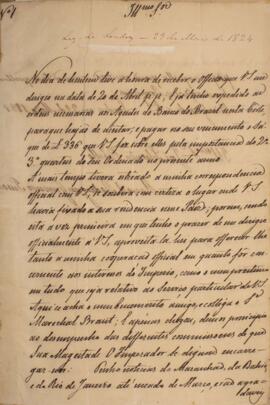 Nº 1
Illmo Snr
Leg. de Londres — 23 de Maio de 1824
No dia de hontem tive a honra de receber o officio que VS me
dirigio na data de 20 de Abril p.p. Eja tenho expedido as
ordens necessarias aos Agentes do Banco do Brazil nesta Corte,
para que hajão de aceitar, e pagar no seu vencimento o Sa-
que de £336 que VS fez sobre elles pela importancia do 2º e
3º quarteis do seu Ordenado no prezente anno.
A mais tempo tivera abrido a minha correspondencia
official com VS, se soubera com certeza o lugar onde VS
havia fixado a sua residencia nesse Paiz; porem, sendo
esta a vez primeira em que tenho o prazer de me dirigir
officialmente a VS, aproveito-la hei para offerecer lhe
tanto a minha cooperação official em quanto for con-
cernente aos interesses do Imperio, como o meu prestimo
em tudo que seja relativo ao Serviço particular de VS.
Aqui se acha o meu benemerito amigo, e collega o Sr
Marechal Brant; E apenas chegou, demos principio
ao desempenho das differentes commissoens de que
Sua Magestade O Imperador Se dignou encarre-
gar nos. Tenho noticias do Maranhão, da Bahia,
e do Rio de Janeiro até meado de Março, e são agra-
daveis